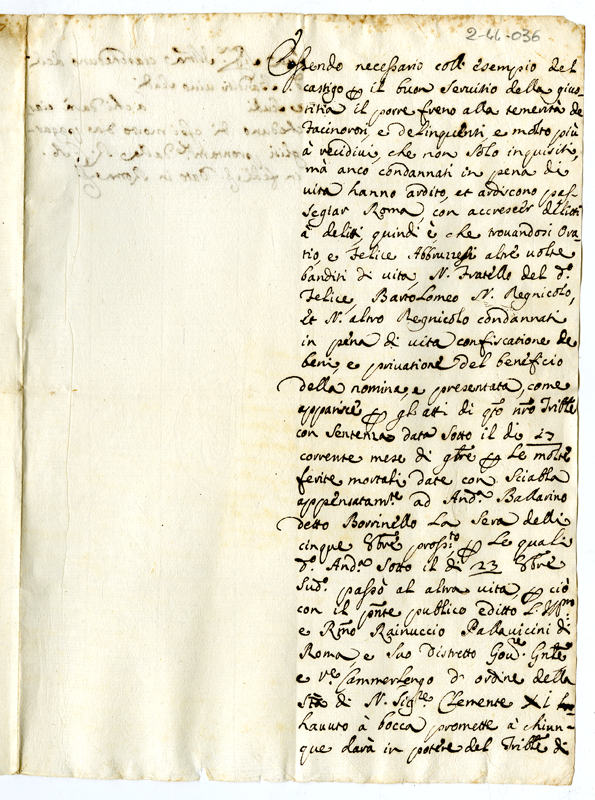 2-44-036
Essendo necessario coll' esempio del
castigo p il buon servitio della gius
titia il porre freno alla temerità de
Facinorosi, e delinquenti, e molto più
à recidivi, che non solo inquisiti,
mà anco condannati in pena di
vita hanno ardito, et ardiscono pas
segiar Roma, con accrescer delitti
à delitti, quindi è, che trovandosi Ora
tio, e Felice Abbruzzesi altre volte
banditi di vita, N. Fratello del do.
Felice, Bartolomeo N. Regnicolo,
et N. altro Regnicolo condannati
in pena di vita confiscatione de
beni, e privatione del beneficio
della nomina, e presentata, come
apparisce p gli atti di qto nro Trible
con sentenza data sotto il di 27
corrente mese di 9bre p Le molte
ferite mortali date con Sciabla
appensatamte ad Anda Ballarino
detto Borrinello La Sera delli
cinque 8bre prossto, p Le quali
do. Anda sotto il di 23 8bre
Sudo. passò al altra vita, p ciò
con il pnte publico editto L'Illmo
e Rmo Rainuccio Pallavicini di
Roma, e Suo Distretto Govre. Gnle
e Ve. Cammerlengo d' ordine della
Stà di N. Sigre Clemente XI
havuto à bocca promette a chiun-
que darà in potere del Trible di